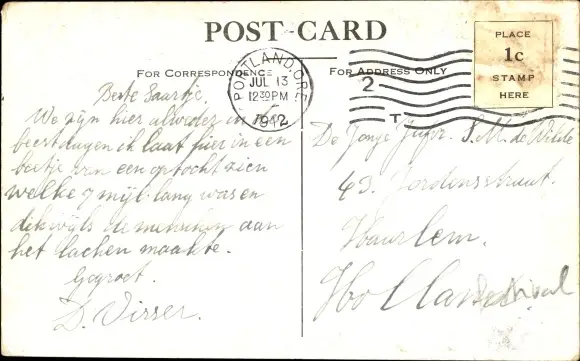 POST CARD
PLACE
1c
STAMP
HERE
FOR CORRESPONDENCE
FOR ADDRESS ONLY
PORTLAND, ORE.
JUL 13
12 30 PM
1912
2
T
Beste Saartje.
We zijn hier alweder in
feestdagen ik laat hier in een
beetje van een optocht zien
welke 7 mijl lang was en
dikwijls de menschen aan
het lachen maakte.
Gegroet.
D. Visser.
De Jonge Jufvr. S. M. de Wilde
43. Jordensstraat.
Haarlem.
Holland